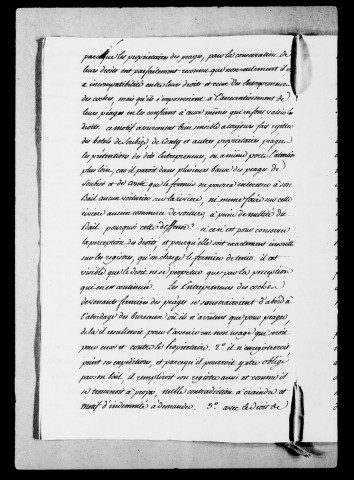 parceque les proprietaires des peages, pour la conservation de
leurs droits ont parfaitement reconnu que non seulement il y
a incompatibilité entre leurs droits et ceux des Entrepreneurs
des coches mais qu'ils s'exposeroient à l'aneantissement de
leurs péages en les confiant à ceux mêmes qui en font valoir les
droits. ce motif assurement bien sensible a toujours fait rejetter
des hotels de Soubize, de Conty et autres proprietaires péages
les prétentions des dits Entrepreneurs, on a même porté l'attention
plus loin, car il paroit dans plusieurs baux des peages de
Soubize et de Conti que le fermier ne pourra interesser à son
Bail aucun voiturier sur la riviere, ni même faire sur cette
riviere aucun commerce de voitures, à peine de nullité du
Bail. pourquoi cette deffense? si ce n'est pour conserver
la perception des droits et pourquoi elle soit exactement inscrite
sur les registres, qu'on charge le fermier de tenir. il est
visible que le droit ne se proroge que par la perception
qui en est continuée. les Entrepreneurs des coches
devenants fermiers des péages se soustrairoient d'abord à
l'abordage des bureaux où ils n'avoient que pour péages
de là il resulteroit pour l'avenir un non usage qui seroit
pour eux et contre le Proprietaire. 2º. il n'enregistreroit
point ses expeditions, et parcequ'il pourroit y etre obligé
par son bail, il rempliroit son registre aussi et comme il
se trouveroit à propos, nulle contradiction à craindre et
motif d'indemnité à demander. 3º. avec le droit de